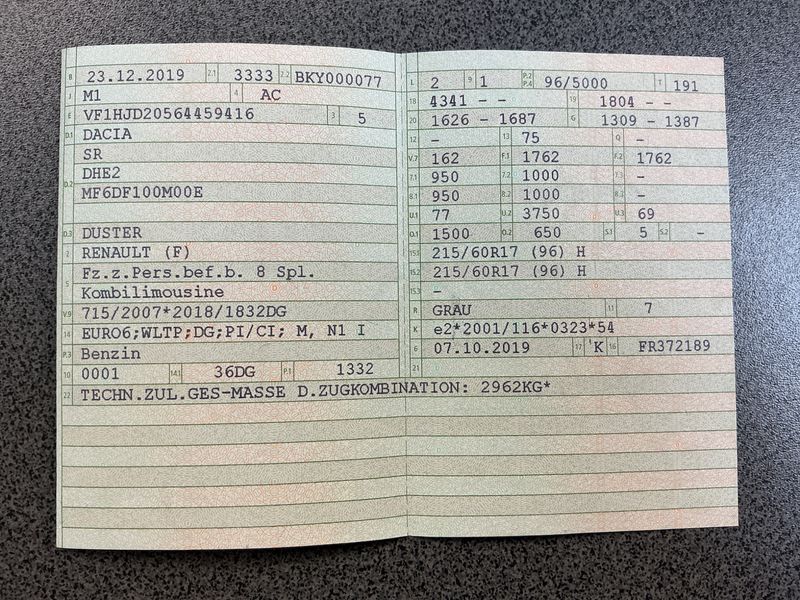 B 23.12.2019 2.1 3333 2.2 BKY000077
J M1 4 AC
E VF1HJD20564459416 3 5
D.1 DACIA
D.2 SR
DHE2
MF6DF100M00E
D.3 DUSTER
2 RENAULT (F)
5 Fz.z.Pers.bef.b. 8 Spl.
Kombilimousine
V.9 715/2007*2018/1832DG
14 EURO6;WLTP;DG;PI/CI; M, N1 I
P.3 Benzin
10 0001 14.1 36DG P.1 1332
22 TECHN.ZUL.GES-MASSE D.ZUGKOMBINATION: 2962KG*
L 2 9 1 P.2 P.4 96/5000 T 191
18 4341 - - 19 1804 - -
20 1626 - 1687 G 1309 - 1387
12 - 13 75 Q -
V.7 162 F.1 1762 F.2 1762
7.1 950 7.2 1000 7.3 -
8.1 950 8.2 1000 8.3 -
U.1 77 U.2 3750 U.3 69
O.1 1500 O.2 650 S.1 5 S.2 -
15.1 215/60R17 (96) H
15.2 215/60R17 (96) H
15.3 -
R GRAU 11 7
K e2*2001/116*0323*54
6 07.10.2019 17 K 16 FR372189
21